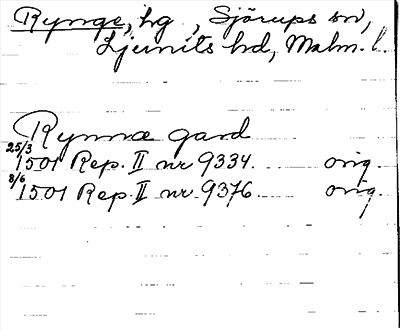 Rynge, hg , Sjörups sn,
Ljunits hd, Malm. l.
Rynnæ gard
25/3 1501 Rep. II nr 9334. orig.
8/6 1501 Rep. II nr 9376 orig.